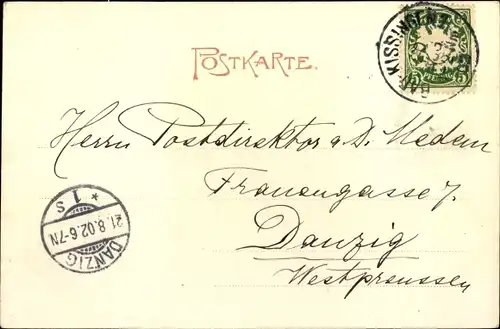 POSTKARTE.
BAD KISSINGEN
5 5
Herrn Postdirektor a. D. Medem
Frauengasse 7.
Danzig
Westpreussen
* 1 S
21.8.02.6-7N
DANZIG